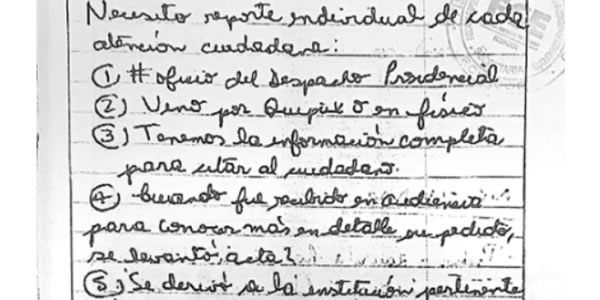 Necesito reporte individual de cada
atención ciudadana:
① # oficio del Despacho Presidencial
② Vino por Quipux o en físico
③ Tenemos la información completa
para citar al ciudadano.
④ Cuando fue recibido en audiencia
para conocer más en detalle su pedido,
se levantó acta?
⑤ Se derivó a la institución pertinente